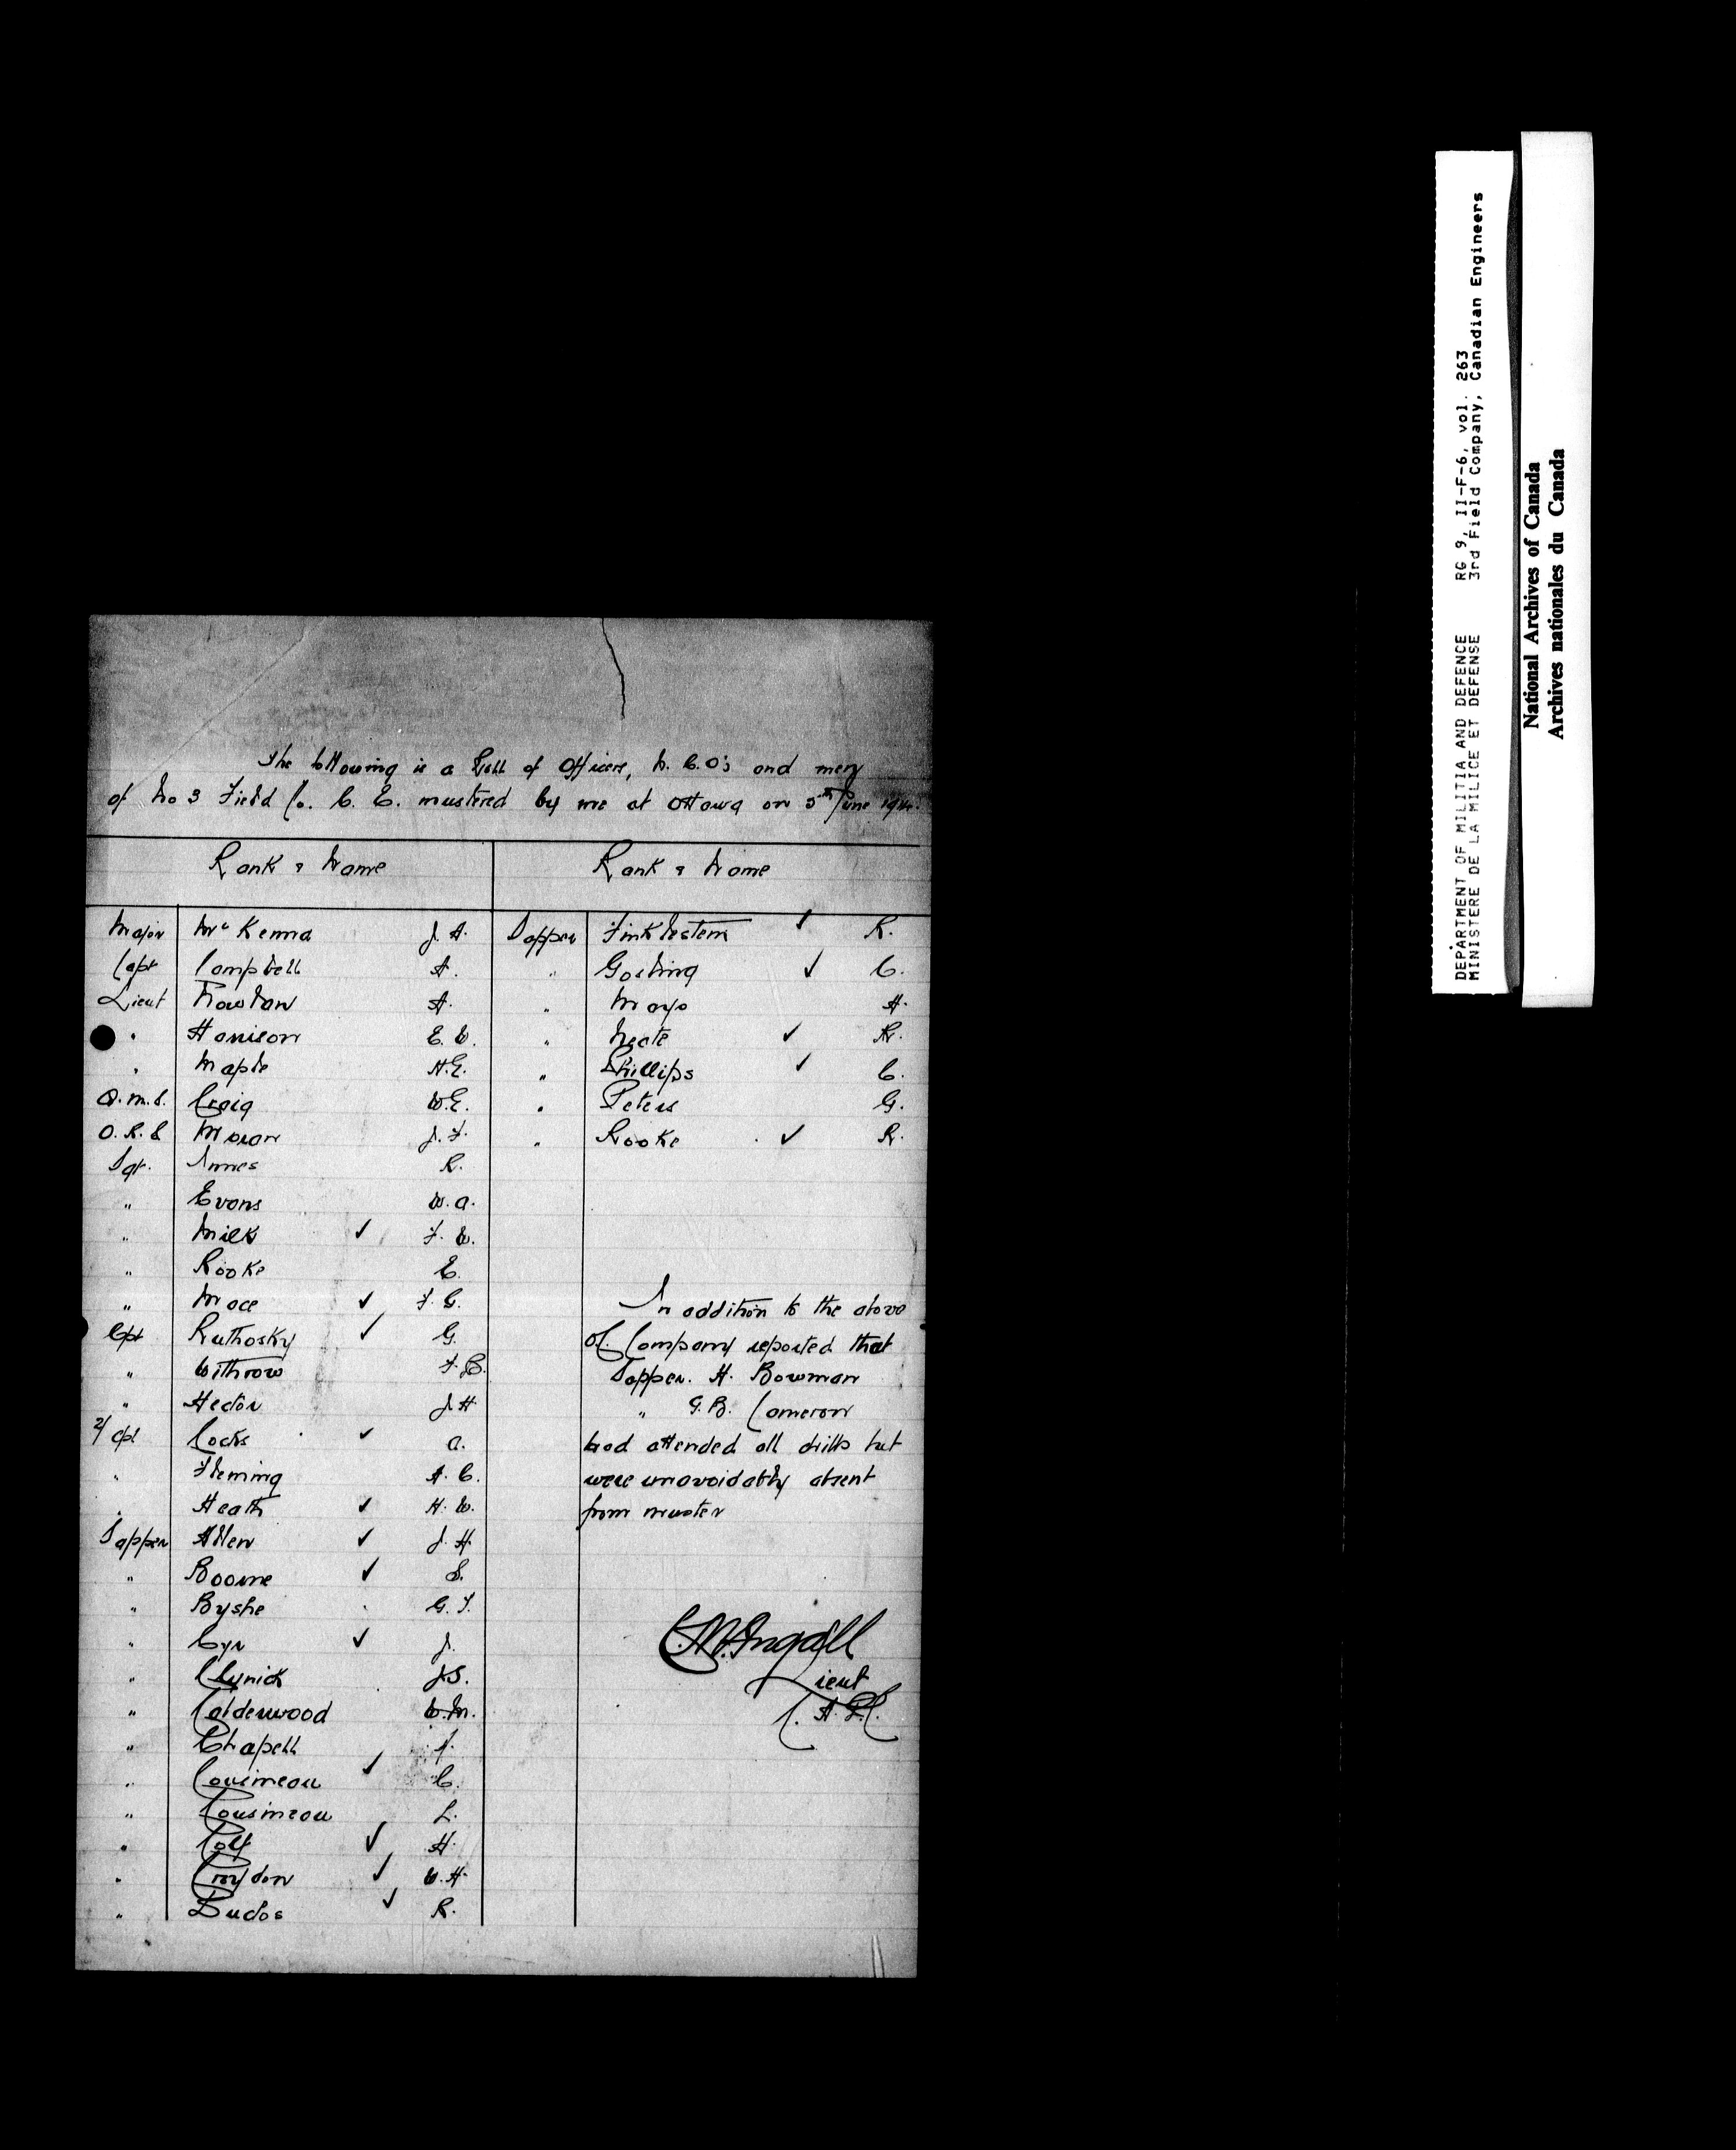 The following is a Roll of Officers, N.C.O's and men
of No 3 Field Co. C. E. mustered by me at Ottawa on 5th June 1914.
Rank & Name Rank & Name
Major McKenna J. A. Sapper Finklestein ✓ R.
Capt Campbell A. " Gosling ✓ C.
Lieut A. " Mays A.
" Harrison E. W. " Neate ✓ R.
" Maple H.E. " Phillips ✓ C.
Q.M.S. Craig W.E. " Peters G.
O.R.S Moran J.F. " Rooke ✓ R.
Sgt. Innes R.
" Evans W.A.
" Milks ✓ F. W.
" Rooke E.
" Mace ✓ F. G.
Cpl Ruthosky ✓ G.
" Withrow F.C.
" Hector J.H.
2/Cpl Cocks ✓ A.
" Fleming A. C.
" Heath ✓ H. W.
Sapper Allen ✓ J. H.
" Boorne ✓ S.
" Byshe G. F.
" Cyr ✓ J.
" Clynick J.S.
" Calderwood W.M.
" Chapell J.
" Cousineau ✓ C.
" Cousineau L.
" Colf ✓ H.
" Croydon ✓ W.H.
" Dudos ✓ R.
In addition to the above
OC. Company reported that
Sapper. H. Bowman
" G.B. Cameron
had attended all drills but
were unavoidably absent
from muster
C.M. Ingall
Lieut
C. A. P.C.
DEPARTMENT OF MILITIA AND DEFENCE RG 9, II-F-6, vol. 263
MINISTERE DE LA MILICE ET DEFENSE 3rd Field Company, Canadian Engineers
National Archives of Canada
Archives nationales du Canada